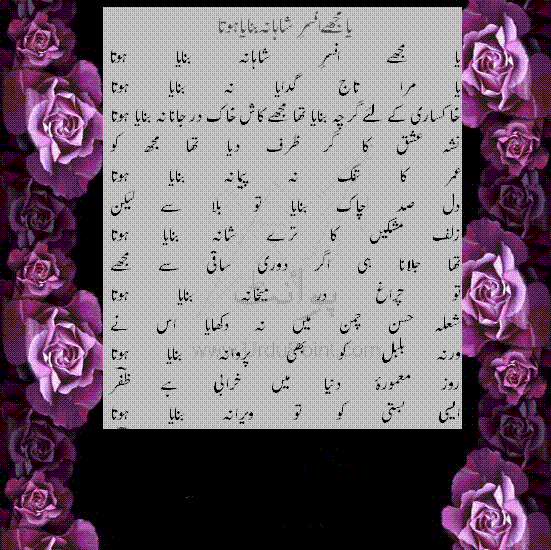 یا مجھے افسر شاہانہ بنایا ہوتا
یا مجھے افسر شاہانہ بنایا ہوتا
یا مرا تاج گدایا نہ بنایا ہوتا
خاکساری کے لئے گرچہ بنایا تھا مجھے کاش خاک در جانا نہ بنایا ہوتا
نشہ عشق کا گر ظرف دیا تھا مجھ کو
عمر کا تنگ نہ پیمانہ بنایا ہوتا
دل صد چاک بنایا تو بلا سے لیکن
زلف مشکیں کا ترے شانہ بنایا ہوتا
تھا جلانا ہی اگر دوری ساقی سے مجھے
تو چراغ در میخانہ بنایا ہوتا
شعلہ حسن چمن میں نہ دکھایا اس نے
ورنہ بلبل کو بھی پروانہ بنایا ہوتا
روز معمورۂ دنیا میں خرابی ہے ظفرؔ
ایسی بستی کو تو ویرانہ بنایا ہوتا
www.UrduPoint.com